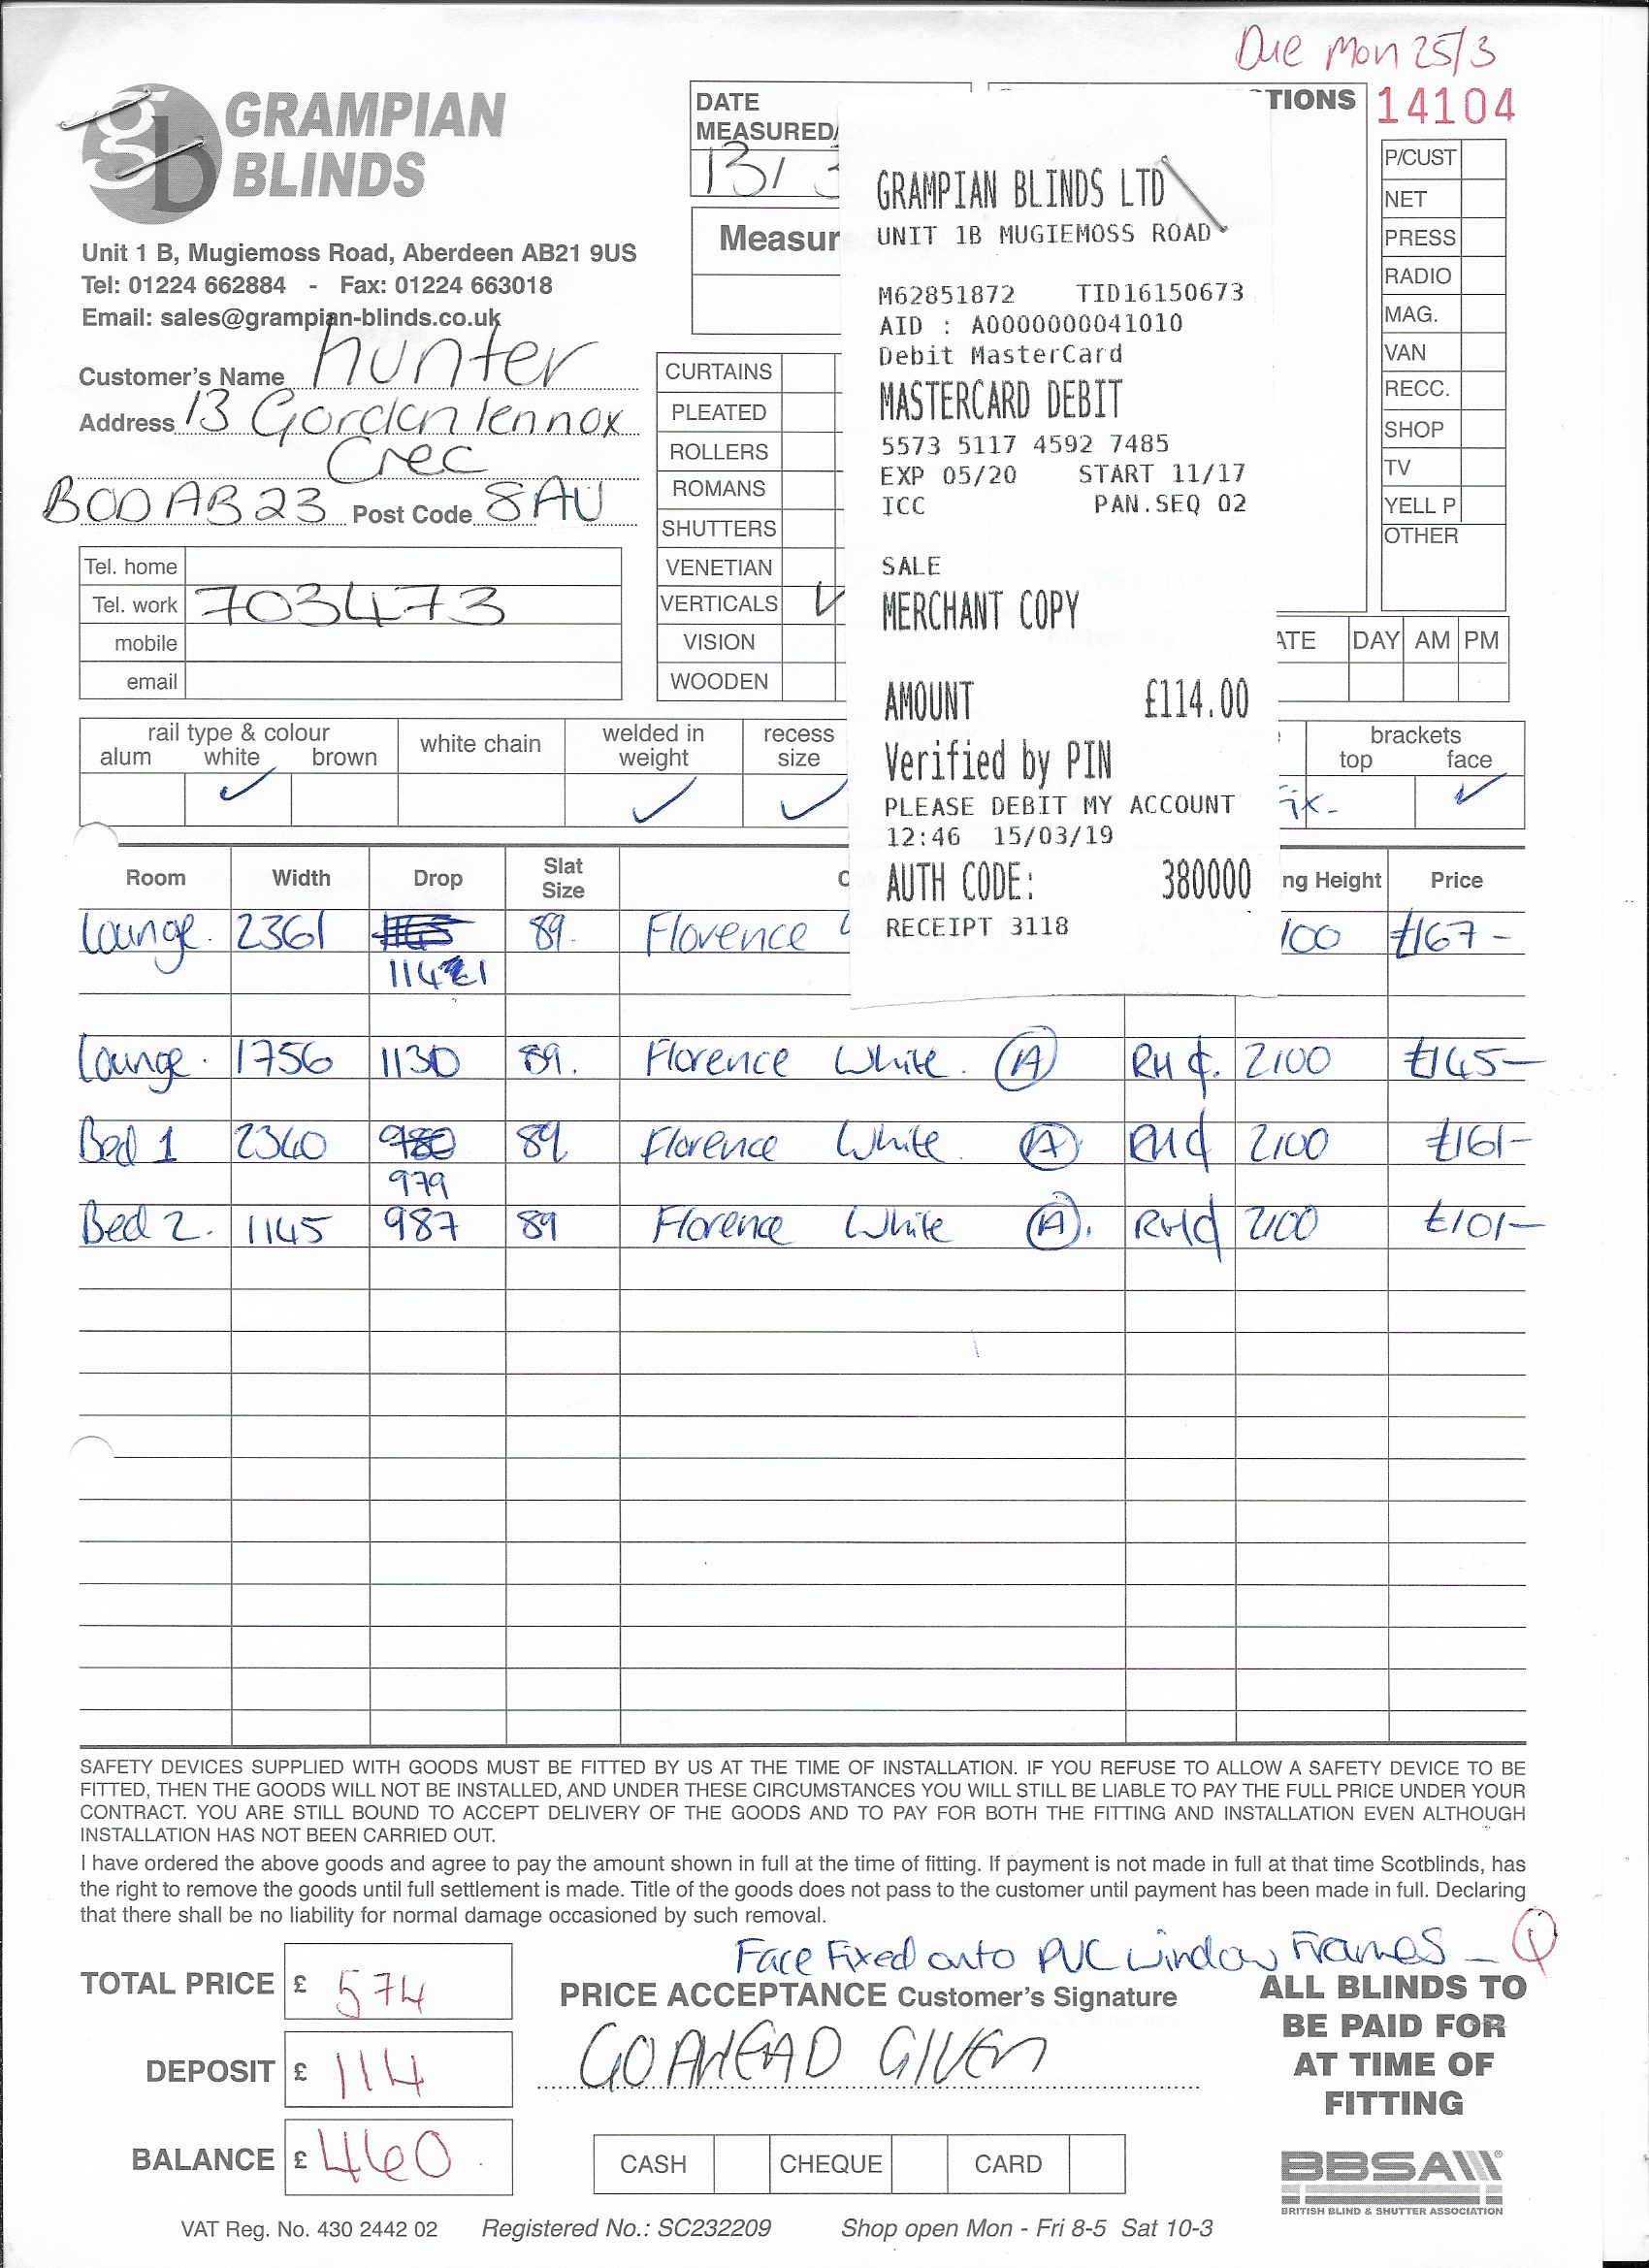 Due Mon 25/3
14104
GRAMPIAN
BLINDS
Unit 1 B, Mugiemoss Road, Aberdeen AB21 9US
Tel: 01224 662884 - Fax: 01224 663018
Email: sales@grampian-blinds.co.uk
Customer's Name hunter
Address 13 Gordon lennox
Crec
BOD AB23 Post Code 8AU
Tel. home
Tel. work 703473
mobile
email
DATE
MEASURED/
13/ 3
Measur
CURTAINS
PLEATED
ROLLERS
ROMANS
SHUTTERS
VENETIAN
VERTICALS ✓
VISION
WOODEN
GRAMPIAN BLINDS LTD
UNIT 1B MUGIEMOSS ROAD
M62851872 TID16150673
AID : A0000000041010
Debit MasterCard
MASTERCARD DEBIT
5573 5117 4592 7485
EXP 05/20 START 11/17
ICC PAN.SEQ 02
SALE
MERCHANT COPY
AMOUNT £114.00
Verified by PIN
PLEASE DEBIT MY ACCOUNT
12:46 15/03/19
AUTH CODE: 380000
RECEIPT 3118
TIONS
P/CUST
NET
PRESS
RADIO
MAG.
VAN
RECC.
SHOP
TV
YELL P
OTHER
ATE DAY AM PM
rail type & colour
alum white brown
white chain
welded in
weight
recess
size
brackets
top face
✓ ✓ ✓ fix- ✓
Room Width Drop Slat Size ng Height Price
Lounge. 2361 89. Florence 100 £167-
1141
Lounge. 1756 1130 89. Florence White. A RH ¢. 2100 £145-
Bed 1 2340 980 89 Florence White. A RH ¢ 2100 £161-
979
Bed 2. 1145 987 89 Florence White A. RH ¢ 2100 £101-
SAFETY DEVICES SUPPLIED WITH GOODS MUST BE FITTED BY US AT THE TIME OF INSTALLATION. IF YOU REFUSE TO ALLOW A SAFETY DEVICE TO BE
FITTED, THEN THE GOODS WILL NOT BE INSTALLED, AND UNDER THESE CIRCUMSTANCES YOU WILL STILL BE LIABLE TO PAY THE FULL PRICE UNDER YOUR
CONTRACT. YOU ARE STILL BOUND TO ACCEPT DELIVERY OF THE GOODS AND TO PAY FOR BOTH THE FITTING AND INSTALLATION EVEN ALTHOUGH
INSTALLATION HAS NOT BEEN CARRIED OUT.
I have ordered the above goods and agree to pay the amount shown in full at the time of fitting. If payment is not made in full at that time Scotblinds, has
the right to remove the goods until full settlement is made. Title of the goods does not pass to the customer until payment has been made in full. Declaring
that there shall be no liability for normal damage occasioned by such removal.
Face Fixed onto PVC window Frames -
TOTAL PRICE £ 574
DEPOSIT £ 114
BALANCE £ 460
PRICE ACCEPTANCE Customer's Signature
GO AHEAD GIVEN
CASH CHEQUE CARD
ALL BLINDS TO
BE PAID FOR
AT TIME OF
FITTING
BBSA
BRITISH BLIND & SHUTTER ASSOCIATION
VAT Reg. No. 430 2442 02 Registered No.: SC232209 Shop open Mon - Fri 8-5 Sat 10-3